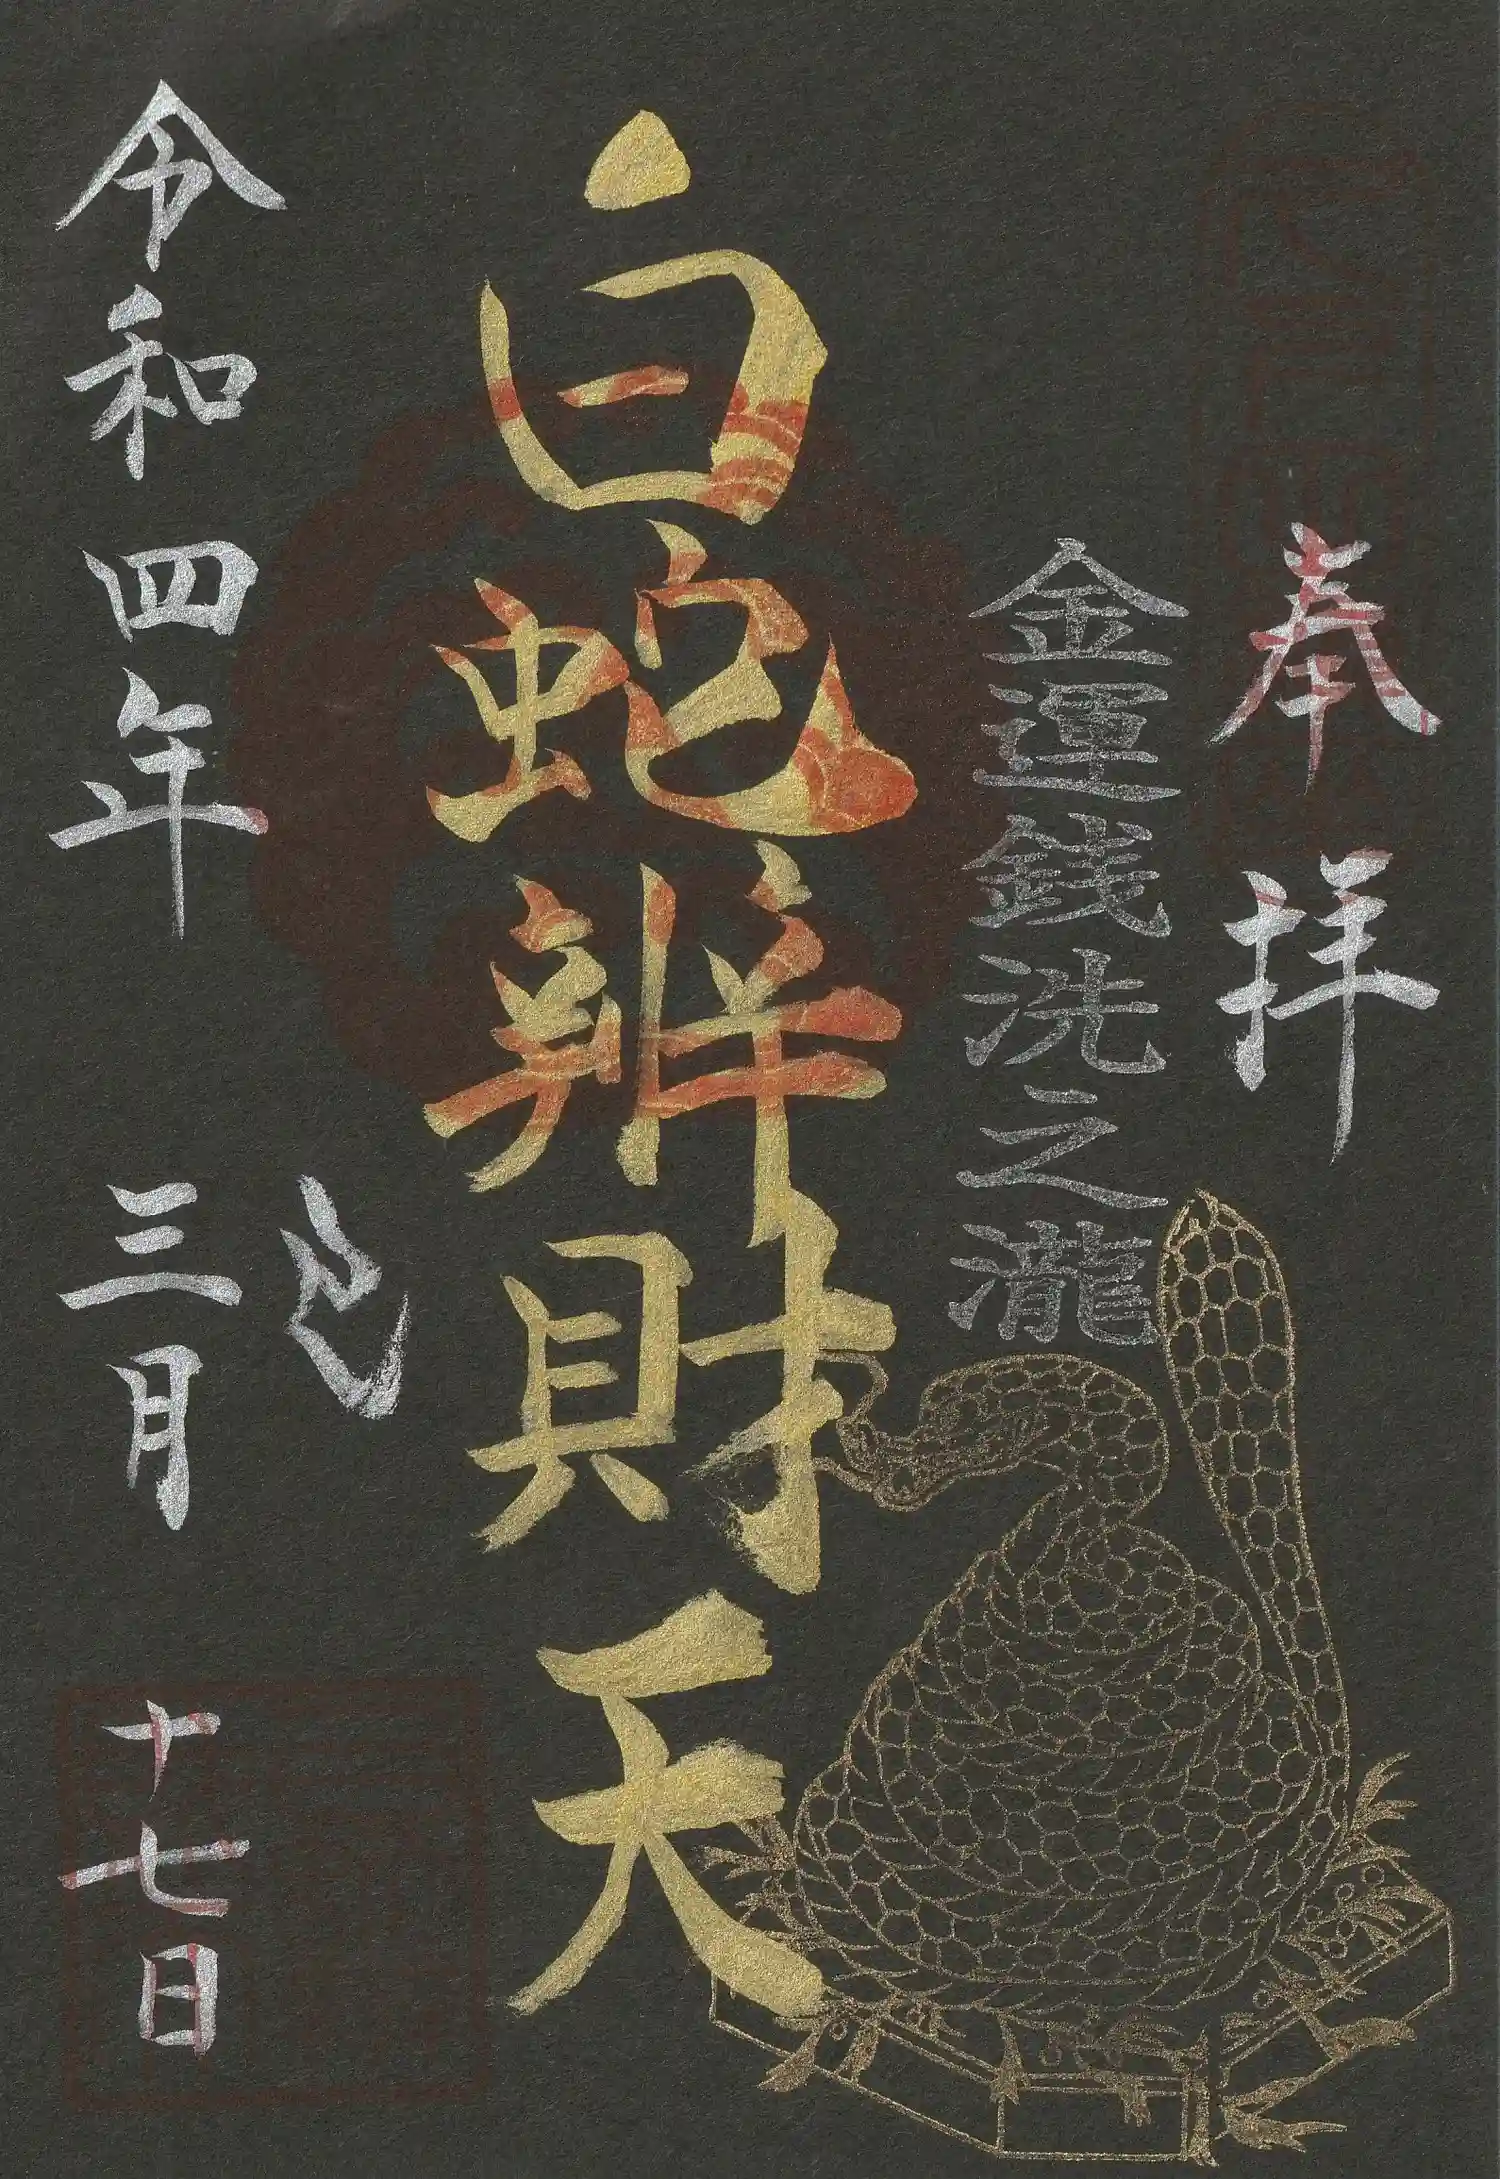 奉拝
金運銭洗之瀧
白蛇辨財天
巳
令和四年 三月 十七日